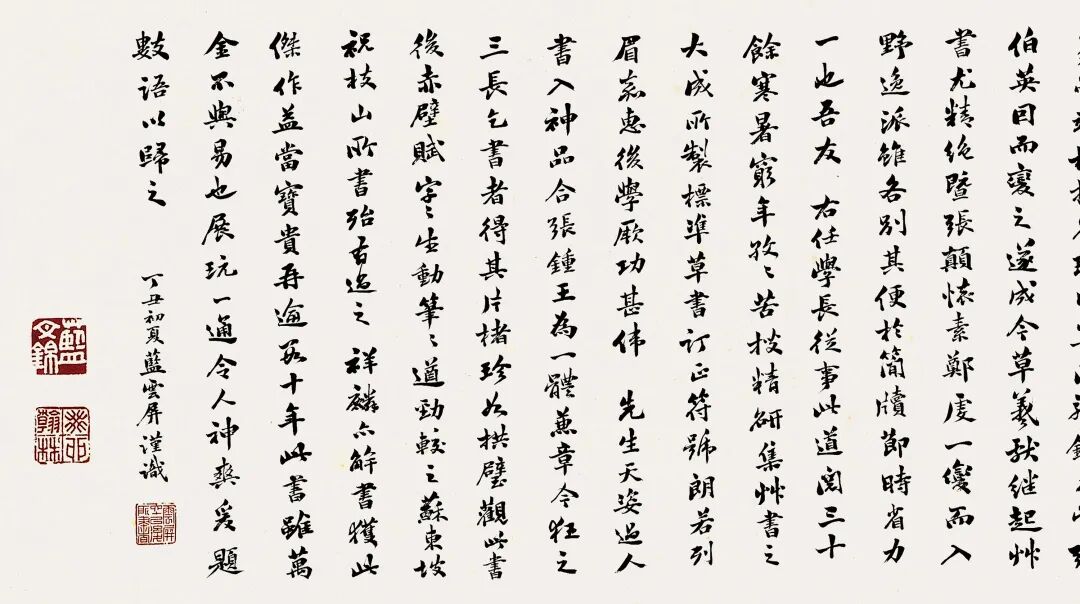 伯英因而變之遂成今草羲獻继起艸
書尤精绝暨張顛懷素鄭虔一變而入
野逸派雖各別其便於簡牘節時省力
一也吾友 右任學長從事此道閱三十
餘寒暑窮年孜〻苦技精研集艸書之
大成所製標準草書订正符號朗若列
眉嘉惠後學厥功甚偉 先生天姿過人
書入神品合張鍾王為一體兼章今狂之
三長乞書者得其片楮珍如拱璧觀此書
後赤壁賦字〻生動筆〻遒勁較之蘇東坡
祝枝山所書殆有過之 祥麟上解書獲此
傑作益當寶貴再逾數十年此書雖萬
金不與易也展玩一通令人神爽爰題
數語以歸之
丁丑初夏藍雲屏謹識